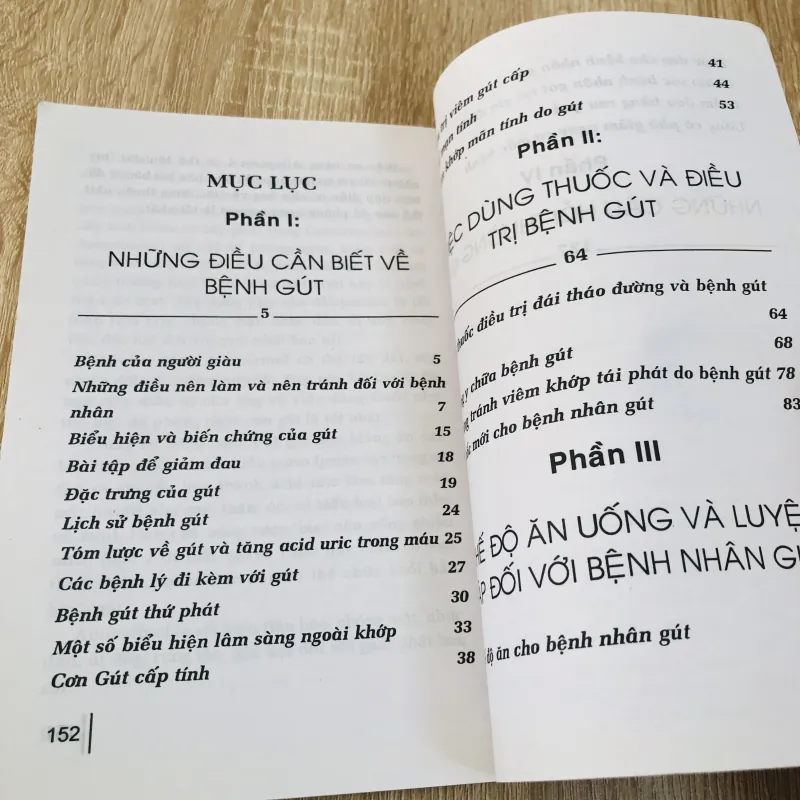 MỤC LỤC
Phần I:
NHỮNG ĐIỀU CẦN BIẾT VỀ
BỆNH GÚT
5
Bệnh của người giàu 5
Những điều nên làm và nên tránh đối với bệnh
nhân 7
Biểu hiện và biến chứng của gút 15
Bài tập để giảm đau 18
Đặc trưng của gút 19
Lịch sử bệnh gút 24
Tóm lược về gút và tăng acid uric trong máu 25
Các bệnh lý đi kèm với gút 27
Bệnh gút thứ phát 30
Một số biểu hiện lâm sàng ngoài khớp 33
Cơn Gút cấp tính 38
152
trị viêm gút cấp 41
mạn tính 44
khớp mãn tính do gút 53
Phần II:
DÙNG THUỐC VÀ ĐIỀU
TRỊ BỆNH GÚT
64
điều trị đái tháo đường và bệnh gút
64
y chữa bệnh gút 68
tránh viêm khớp tái phát do bệnh gút 78
mới cho bệnh nhân gút 83
Phần III
ĐỘ ĂN UỐNG VÀ LUYỆ
ĐỐI VỚI BỆNH NHÂN GÚ
độ ăn cho bệnh nhân gút